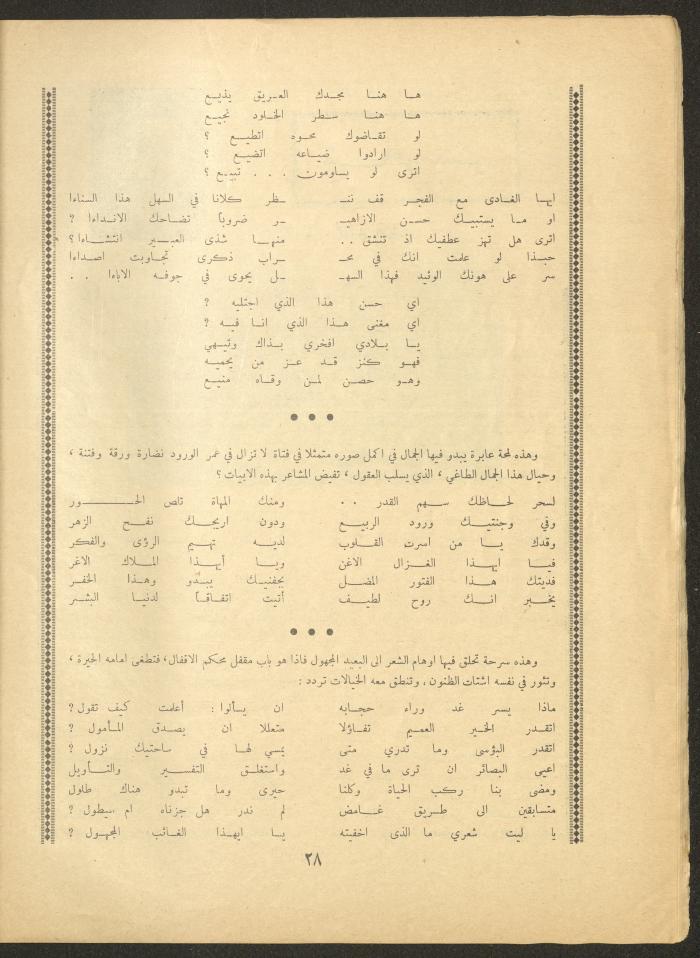 هـا هنـا مجـدك العـريق يذيـع
هـا هنـا سـطر الخـلود نجيـع
لو تقـاضوك محـوه اتطيـع ؟
لو ارادوا ضيـاعه اتضيـع ؟
اترى لو يسـاومون . . . تبيـع ؟
ايهـا الغـادى مع الفجـر قف ننـ ـظر كلانا في السهل هذا السناءا
او مـا يستبيـك حسـن الازاهيـ ـر ضروبا تضاحك الانـداءا ؟
اترى هل تهز عطفيك اذ تنشق .. منهـا شذى العبـير انتشـاءا ؟
حبـذا لو علمت انك في محـ ـراب ذكرى تجـاوبت اصـداءا
سر على هونك الوئيد فهذا السهـ ـل يحوى في جوفـه الاباءا . .
اي حسن هـذا الذي اجتليه ؟
اي مغنى هـذا الذي انـا فيـه ؟
يـا بـلادي افخري بـذاك وتيـهي
فهـو كنز قـد عـز من يحميـه
وهـو حصـن لمـن وقـاه منيـع
● ● ●
وهذه لمحة عابرة يبدو فيها الجمال في اكمل صوره متمثلا في فتاة لا تزال في عمر الورود نضارة ورقة وفتنة ،
وحيال هذا الجمال الطاغي ، الذي يسلب العقول ، تفيض المشاعر بهذه الابيات ؟
لسحر لحـاظك سـهم القدر .. ومنك المهاة تلص الحـور
وفي وجنتيـك ورود الربيـع ودون اريجـك نفـح الزهر
وقدك يـا من اسرت القـلوب لديـه تهـيم الرؤى والفكر
فيـا ايهـذا الغـزال الاغن ويـا أيهـذا المـلاك الاغر
فديتك هـذا الفتور المضـل بجفنيـك يبـدو وهـذا الخفـر
يخـبر انـك روح لطيـف أتيت اتفـاقـاً لدنيـا البشـر
● ● ●
وهذه سرحة تحلق فيها اوهام الشعر الى البعيد المجهول فاذا هو باب مقفل محكم الاقفال، فتطغى امامه الحيرة ،
وتثور في نفسه اشتات الظنون ، وتنطق معه الخيالات تردد :
ماذا يسر غد وراء حجـابه ان يسألوا : أعلمت كيف تقول ؟
اتقـدر الخـير العميـم تفـاؤلا متعللا ان يصدق المـأمول ؟
اتقدر البؤسى ومـا تدري متى يمسي لهـا في ساحتيك نزول ؟
اعيى البصائر ان ترى ما في غد واستغلـق التفسـير والتـأويل
ومضى بنـا ركب الحياة وكلنا حيرى ومـا تبدو هناك طلول
متسابقين الى طـريق غـامض لم ندر هل جزناه ام سيطول ؟
يا ليت شعري ما الذى اخفيته يـا ايهـذا الغـائب المجهـول ؟
٢٨